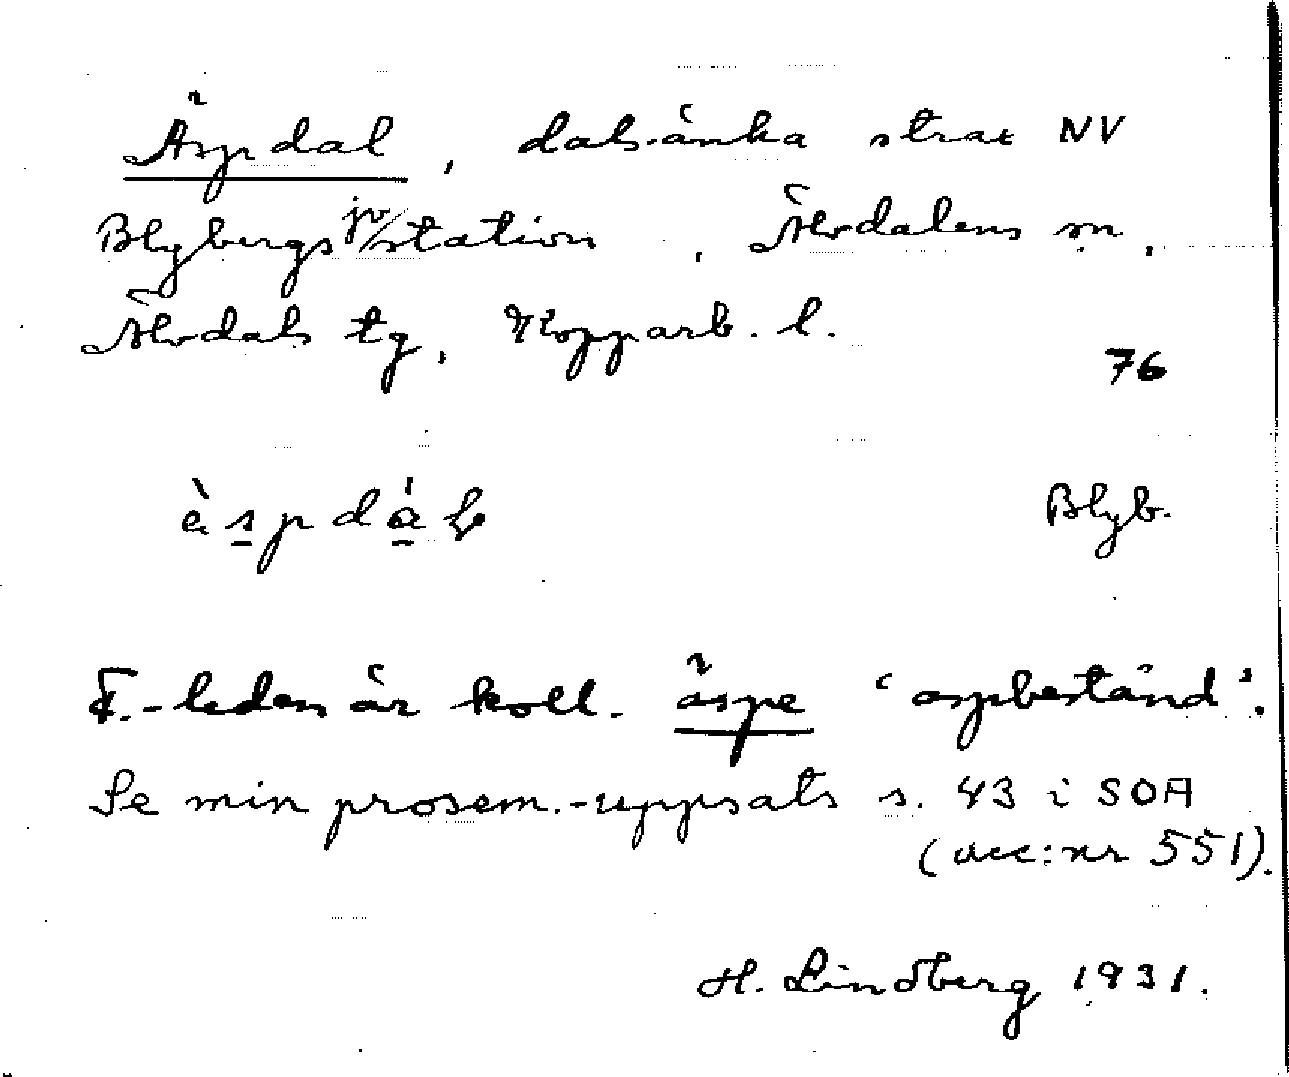 Äspdal, dalsänka strax NV
Blybergs jv/station, Älvdalens sn,
Älvdals tg, Kopparb. l.
76
Blyb.
F.-leden är koll. äspe 'aspbestånd'.
Se min prosem.-uppsats s. 43 i SOA
(acc:nr 551).
H. Lindberg 1931.